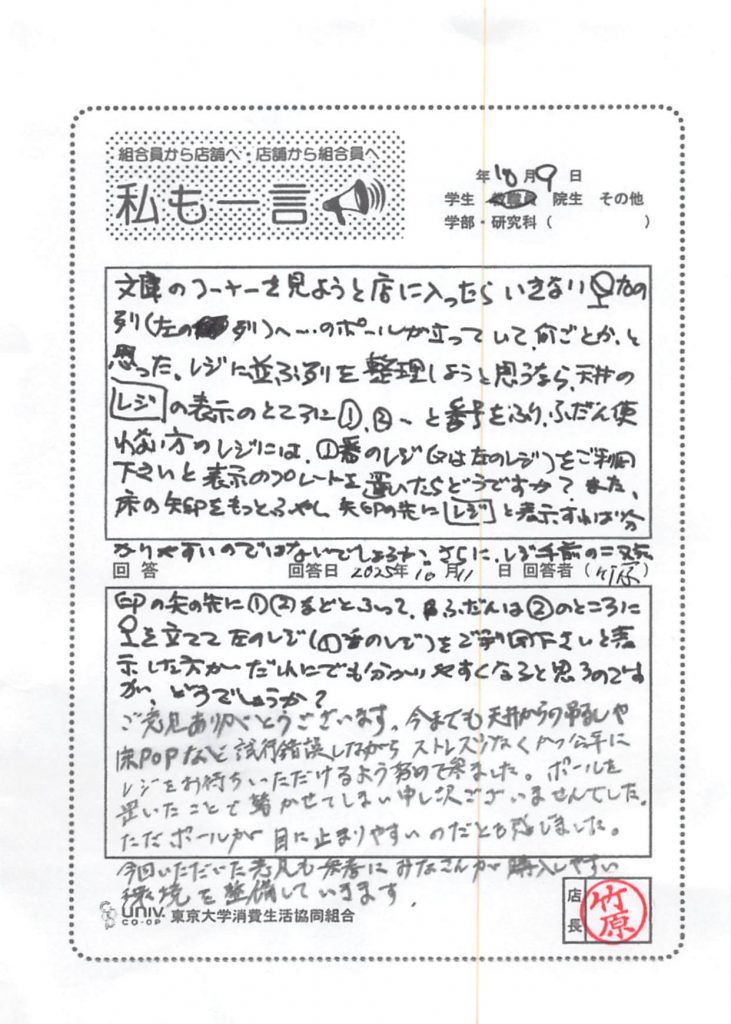 組合員から店舗へ・店舗から組合員へ
私も一言
年10月9日
学生 教職員 院生 その他
学部・研究科( )
文庫のコーナーを見ようと店に入ったらいきなり右の
列(左の列)へ…のポールが立っていて、何ごとか、と
思った、レジに並ぶ列を整理しようと思うなら、天井の
レジの表示のところに①、②、、と番号をふり、ふだん使
わない方のレジには、①番のレジ(又は左のレジ)をご利用
下さいと表示のプレートを置いたらどうですか?また、
床の矢印をもっとふやし、矢印の先にレジと表示すれば分
かりやすいのではないでしょうか。さらに、レジ手前の
回答 回答日 2025年10月11日 回答者(竹原)
印の矢の先に①②などとふって、ふだんは②のところに
を立てて左のレジ(①番のレジ)をご利用下さいと表
示した方がだれにでも分かりやすくなると思うのです
が、どうでしょうか?
ご意見ありがとうございます。今までも天井からの吊るしや
床POPなど試行錯誤しながらストレス少なくかつ公平に
レジをお待ちいただけるよう努めて参りました。ポールを
置いたことで驚かせてしまい申し訳ございませんでした。
ただポールが目に止まりやすいのだとも感じました。
今回いただいた意見も参考にみなさんが購入しやすい
環境を整備していきます。
UNIV. CO-OP 東京大学消費生活協同組合
店長 竹原